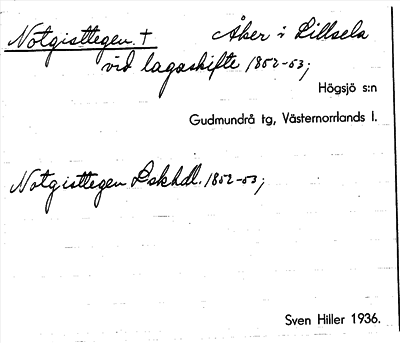 Notgisttegen. † Åker i Lillsela
vid lagaskifte 1852-53;
Högsjö s:n
Gudmundrå tg, Västernorrlands l.
Notgisttegen Lskhdl. 1852-53;
Sven Hiller 1936.